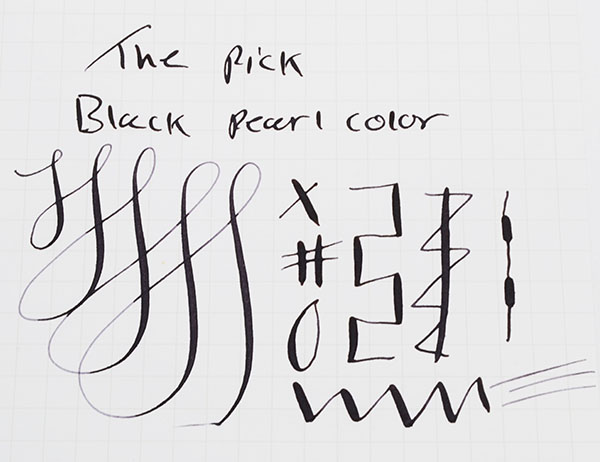 The pick
Black pearl color